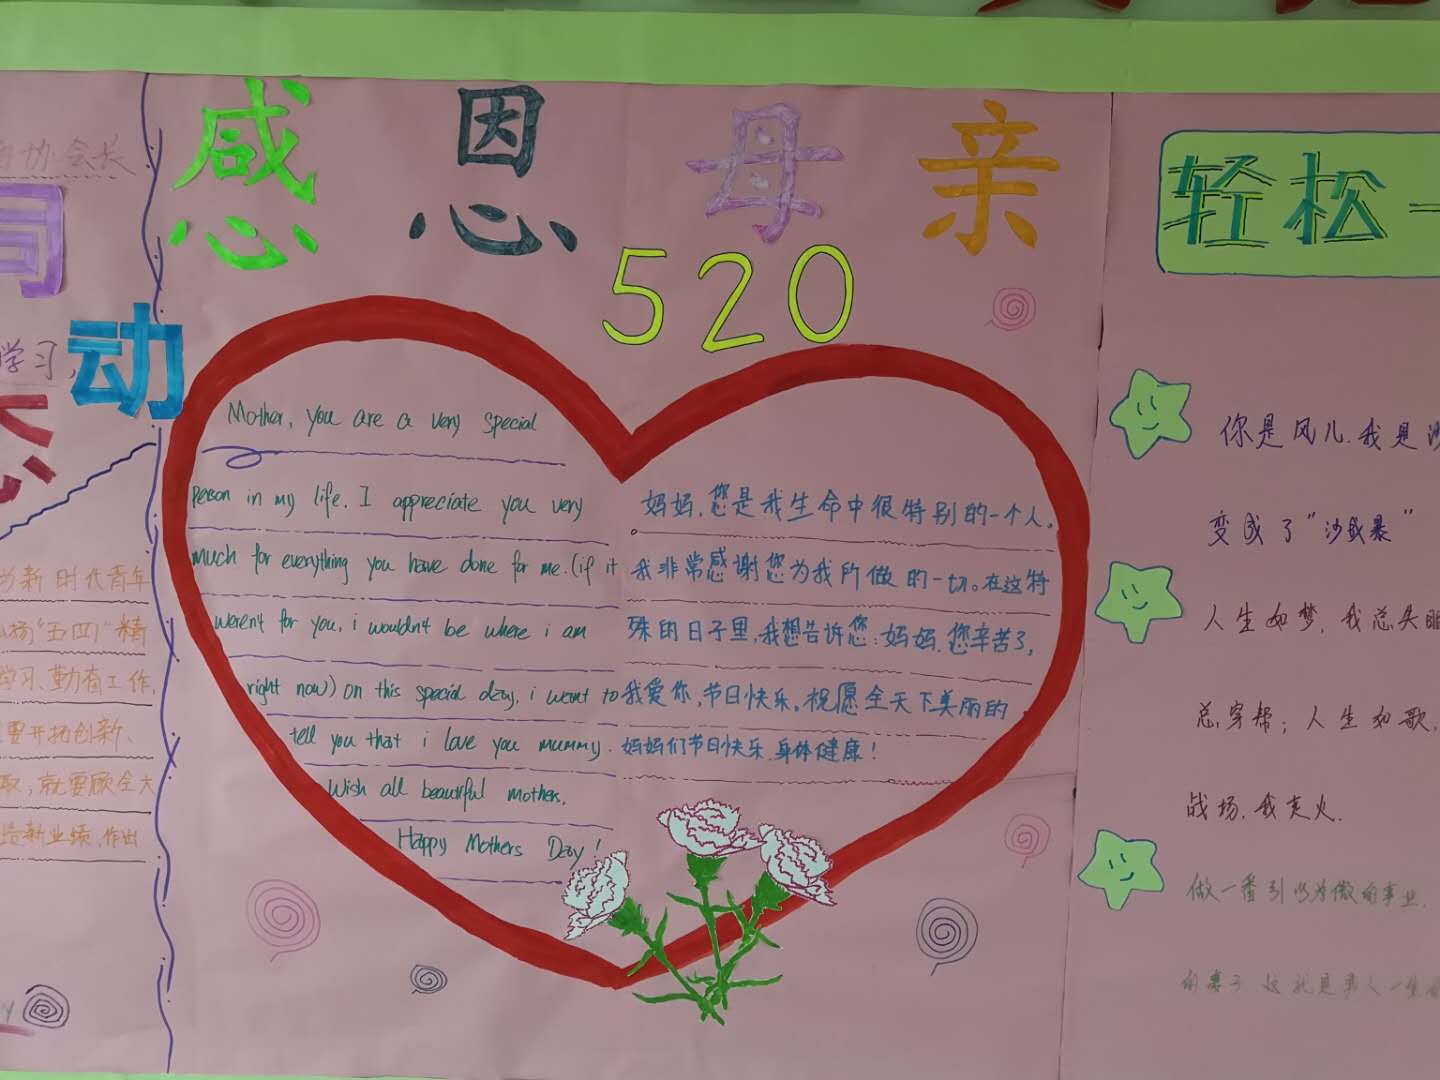 感恩母亲
520
Mother, you are a very special
person in my life. I appreciate you very
much for everything you have done for me. (if it
weren't for you, i wouldn't be where i am
right now) On this special day, i want to
tell you that i love you mummy.
Wish all beautiful mothers,
Happy Mothers Day!
妈妈,您是我生命中很特别的一个人。
我非常感谢您为我所做的一切。在这特
殊的日子里,我想告诉您:妈妈,您辛苦了,
我爱你,节日快乐。祝愿全天下美丽的
妈妈们节日快乐,身体健康!
会长
司
动
学习,
态
新时代青年
扬"五四"精
学习、勤奋工作,
要开拓创新、
取;就要顾全大
新业绩,作出
轻松一
你是风儿,我是沙
变成了"沙战暴"
人生如梦,我总失眠
总穿帮;人生如歌,
战场,我走火.
做一番引以为傲的事业,